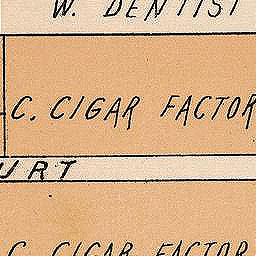 W. DENTIST
C. CIGAR FACTOR
URT
C. CIGAR FACTOR